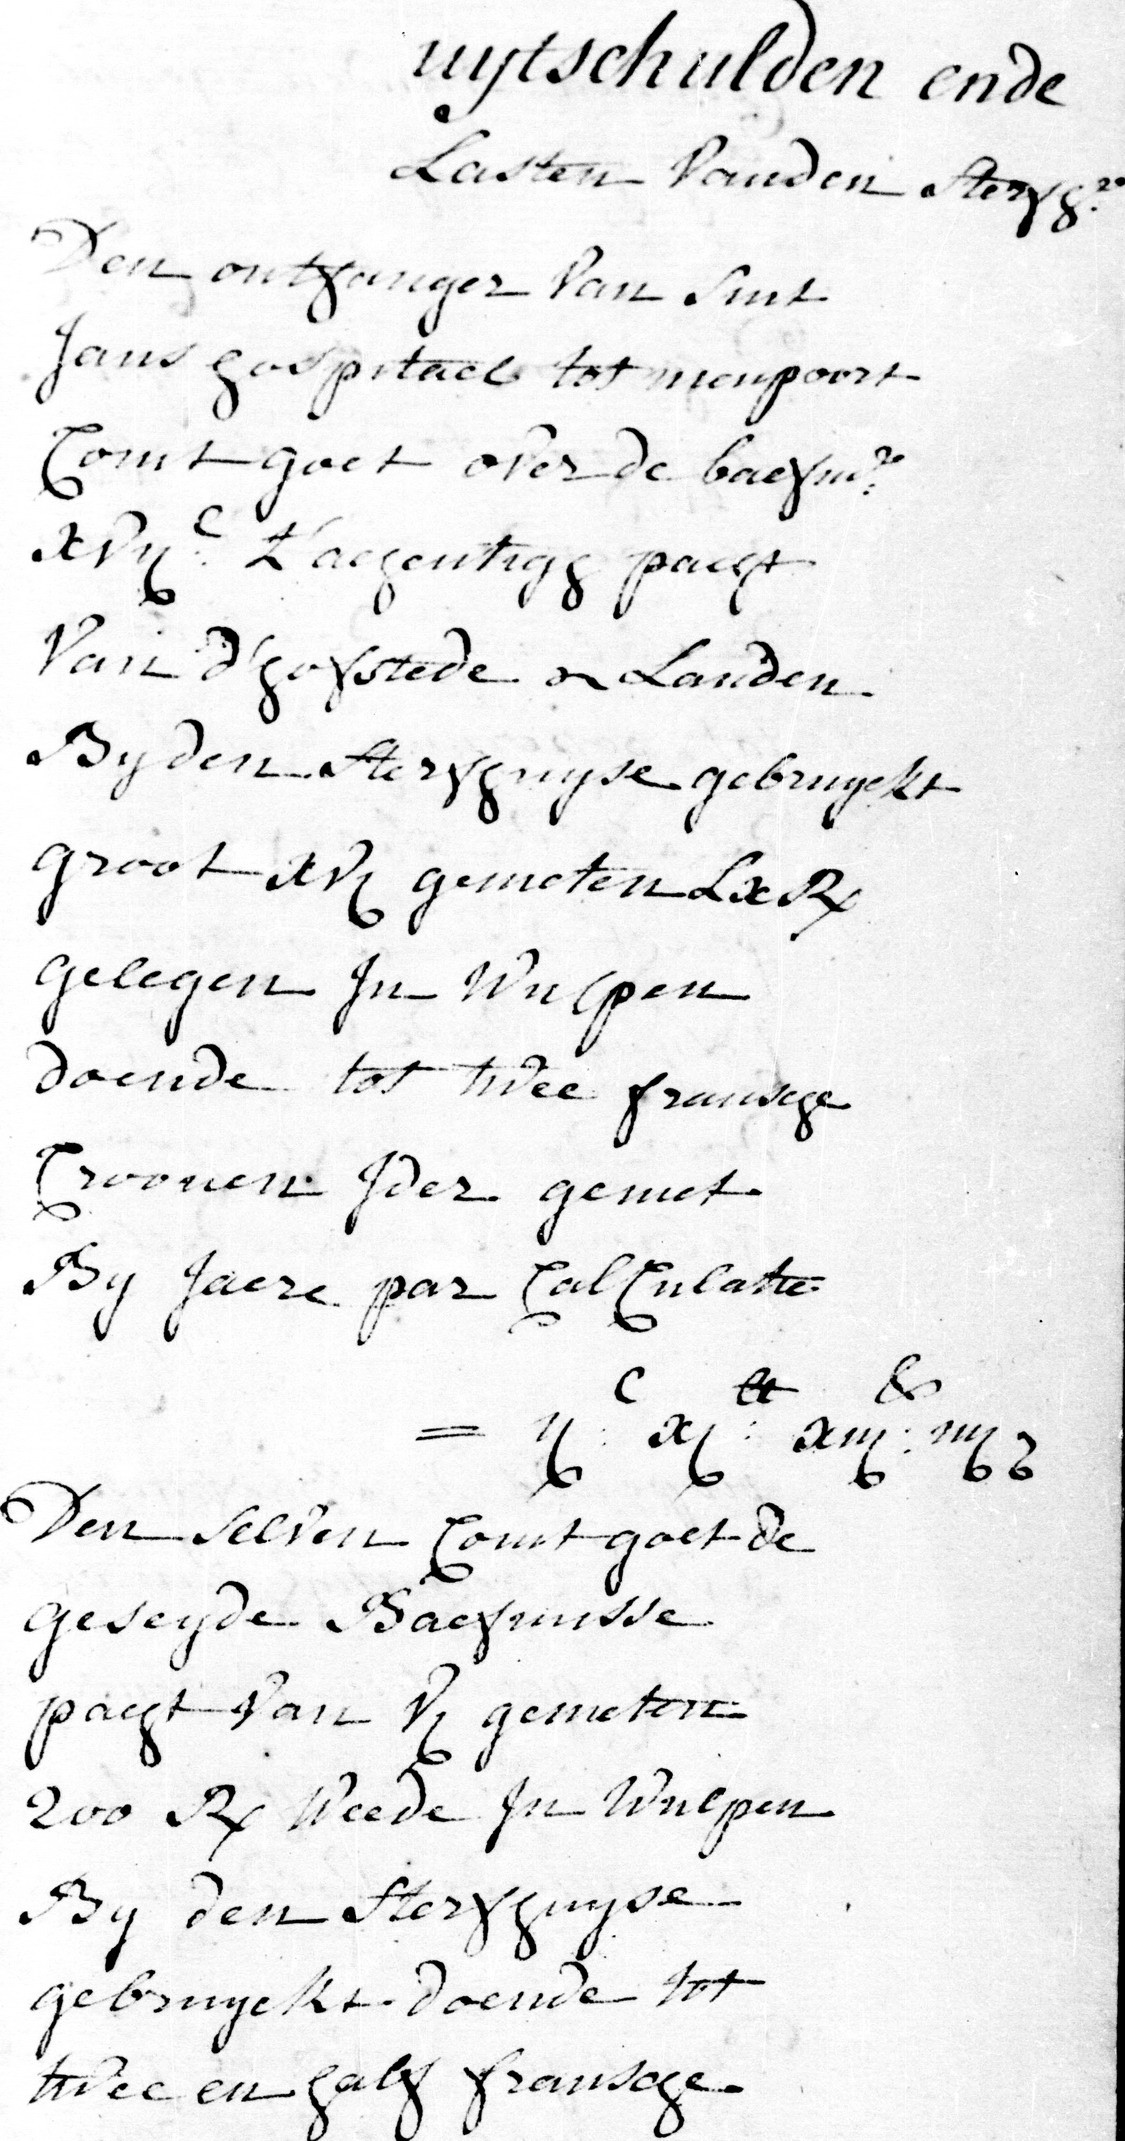 uytschulden ende
Lasten Vanden sterfh.re
Den ontfanger Van sint
Jans hospitael tot nieupoort
Comt goet over de baefm.e
XVIJ.C t'achentigh pacht
Van d'hofstede en Landen
By den sterfhuyse gebruyckt
groot XVJ gemeten LX R
gelegen In Wulpen
doende tot twee fransche
Croonen Ider gemet
By Jaere par Calculatie
= IJ:C XJ: lt XIIJ: s IIIJ d
Den selven Comt goet de
geseyde Baefmisse
pacht Van VJ gemeten
200 R Weede In Wulpen
By den sterfhuyse
gebruyckt doende tot
twee en half fransche